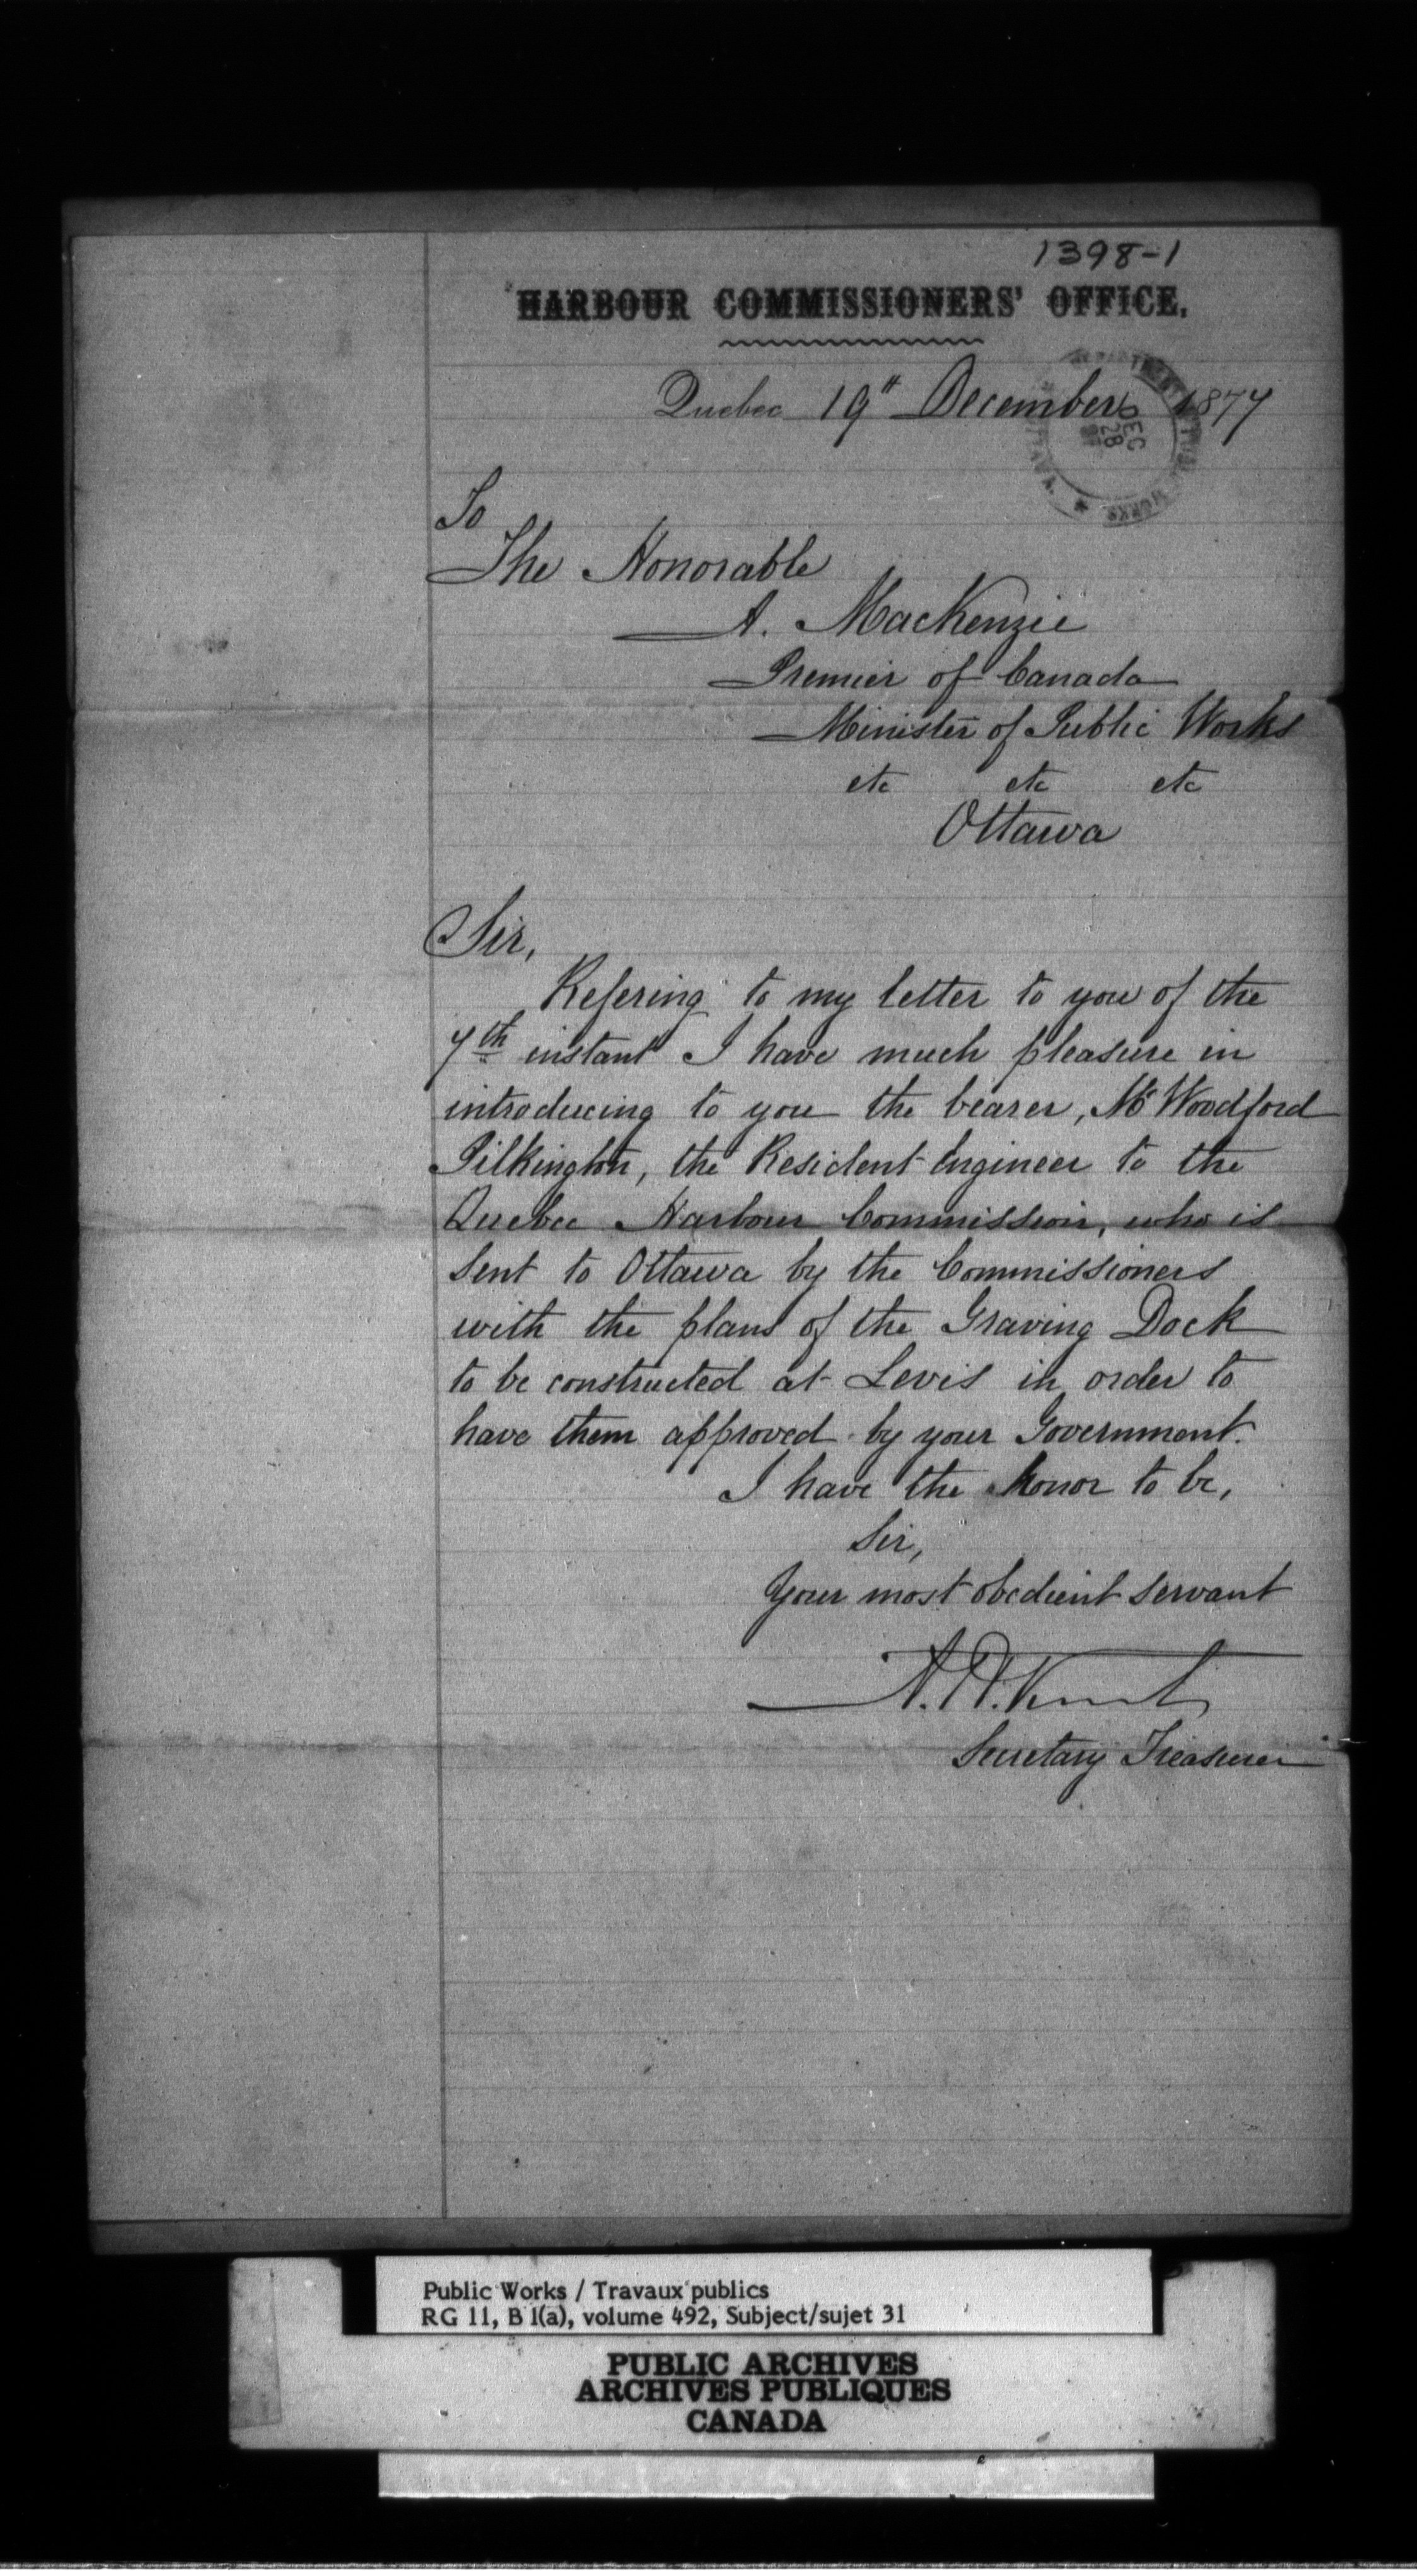 1398-1
HARBOUR COMMISSIONERS' OFFICE.
Quebec 19" December 1877
DEPARTMENT PUBLIC WORKS
DEC
28
To
The Honorable
A. MacKenzie
Premier of Canada
Minister of Public Works
etc etc etc
Ottawa
Sir,
Refering to my letter to you of the
7th instant I have much pleasure in
introducing to you the bearer, Mr Woodford
Pilkington, the Resident Engineer to the
Quebec Harbour Commission, who is
sent to Ottawa by the Commissioners
with the plans of the Graving Dock
to be constructed at Levis in order to
have them approved by your Government.
I have the honor to be,
Sir,
Your most obedient servant
Secretary Treasurer
Public Works / Travaux publics
RG 11, B 1(a), volume 492, Subject/sujet 31
PUBLIC ARCHIVES
ARCHIVES PUBLIQUES
CANADA